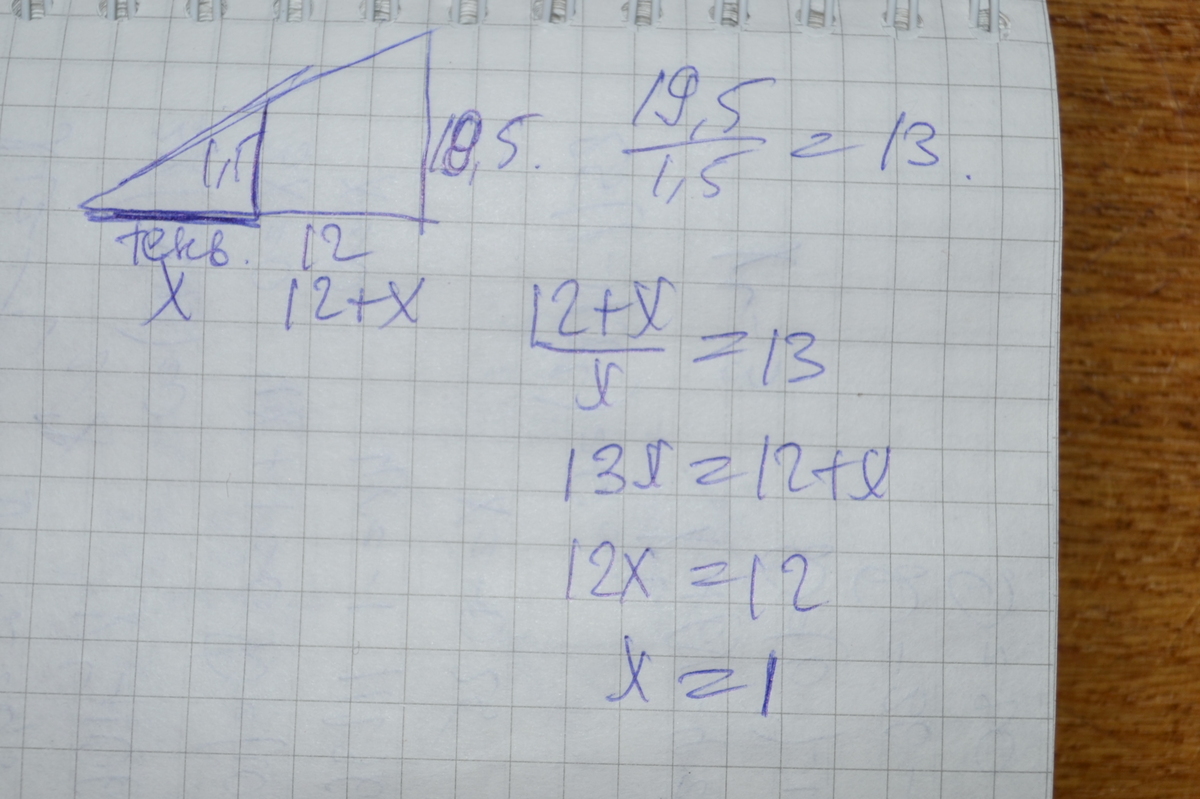 1,5
19,5.
текв. 12
x 12+x
19,5/1,5 = 13.
12+x/x = 13
13x = 12+x
12x = 12
x = 1